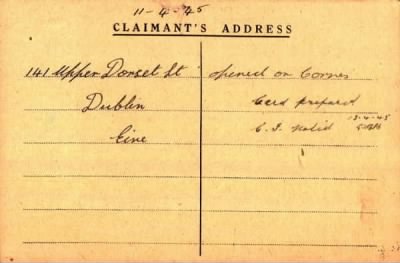 11-4-45
CLAIMANT'S ADDRESS
141 Upper Dorset St
Dublin
Eire
opened on Cornes
Card prepared
C.I. valid
13-4-45